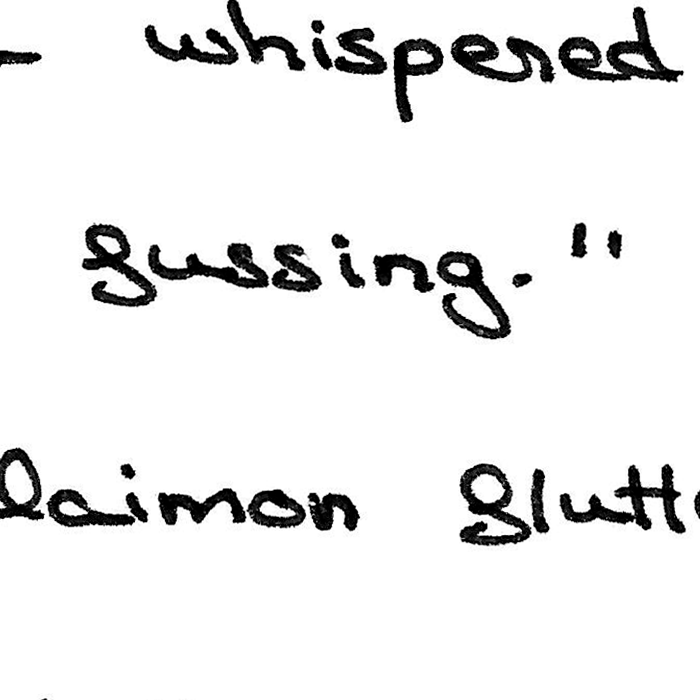 - whispered
fussing."
laimon flutt